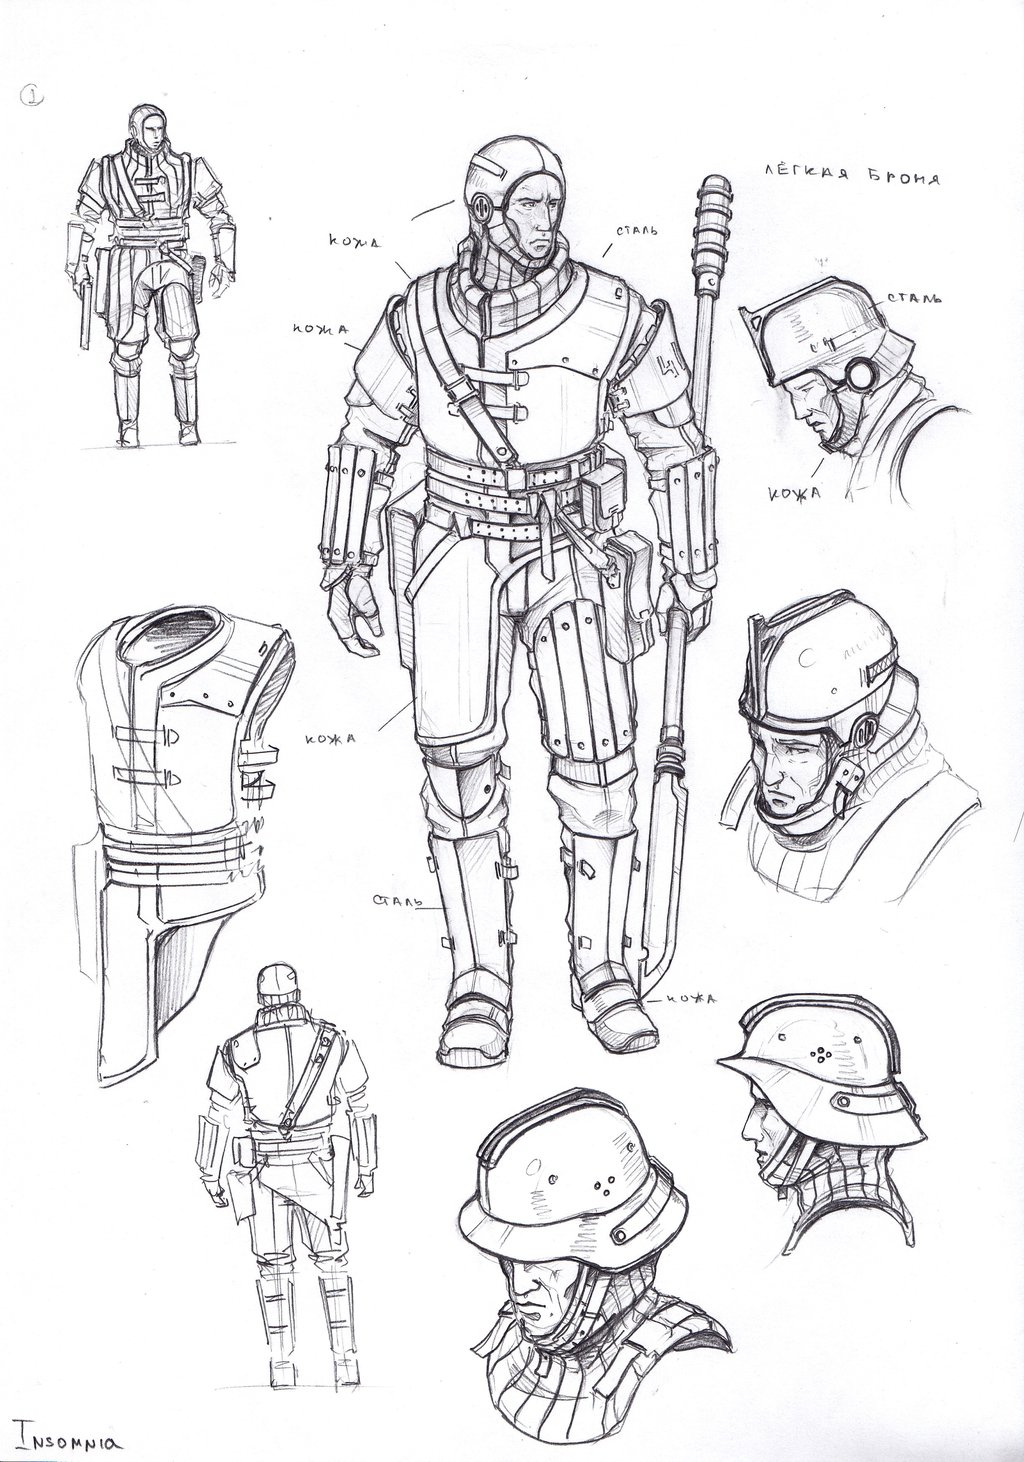 1
ЛЁГКАЯ БРОНЯ
КОЖА
СТАЛЬ
СТАЛЬ
КОЖА
КОЖА
КОЖА
СТАЛЬ
КОЖА
INSOMNIA